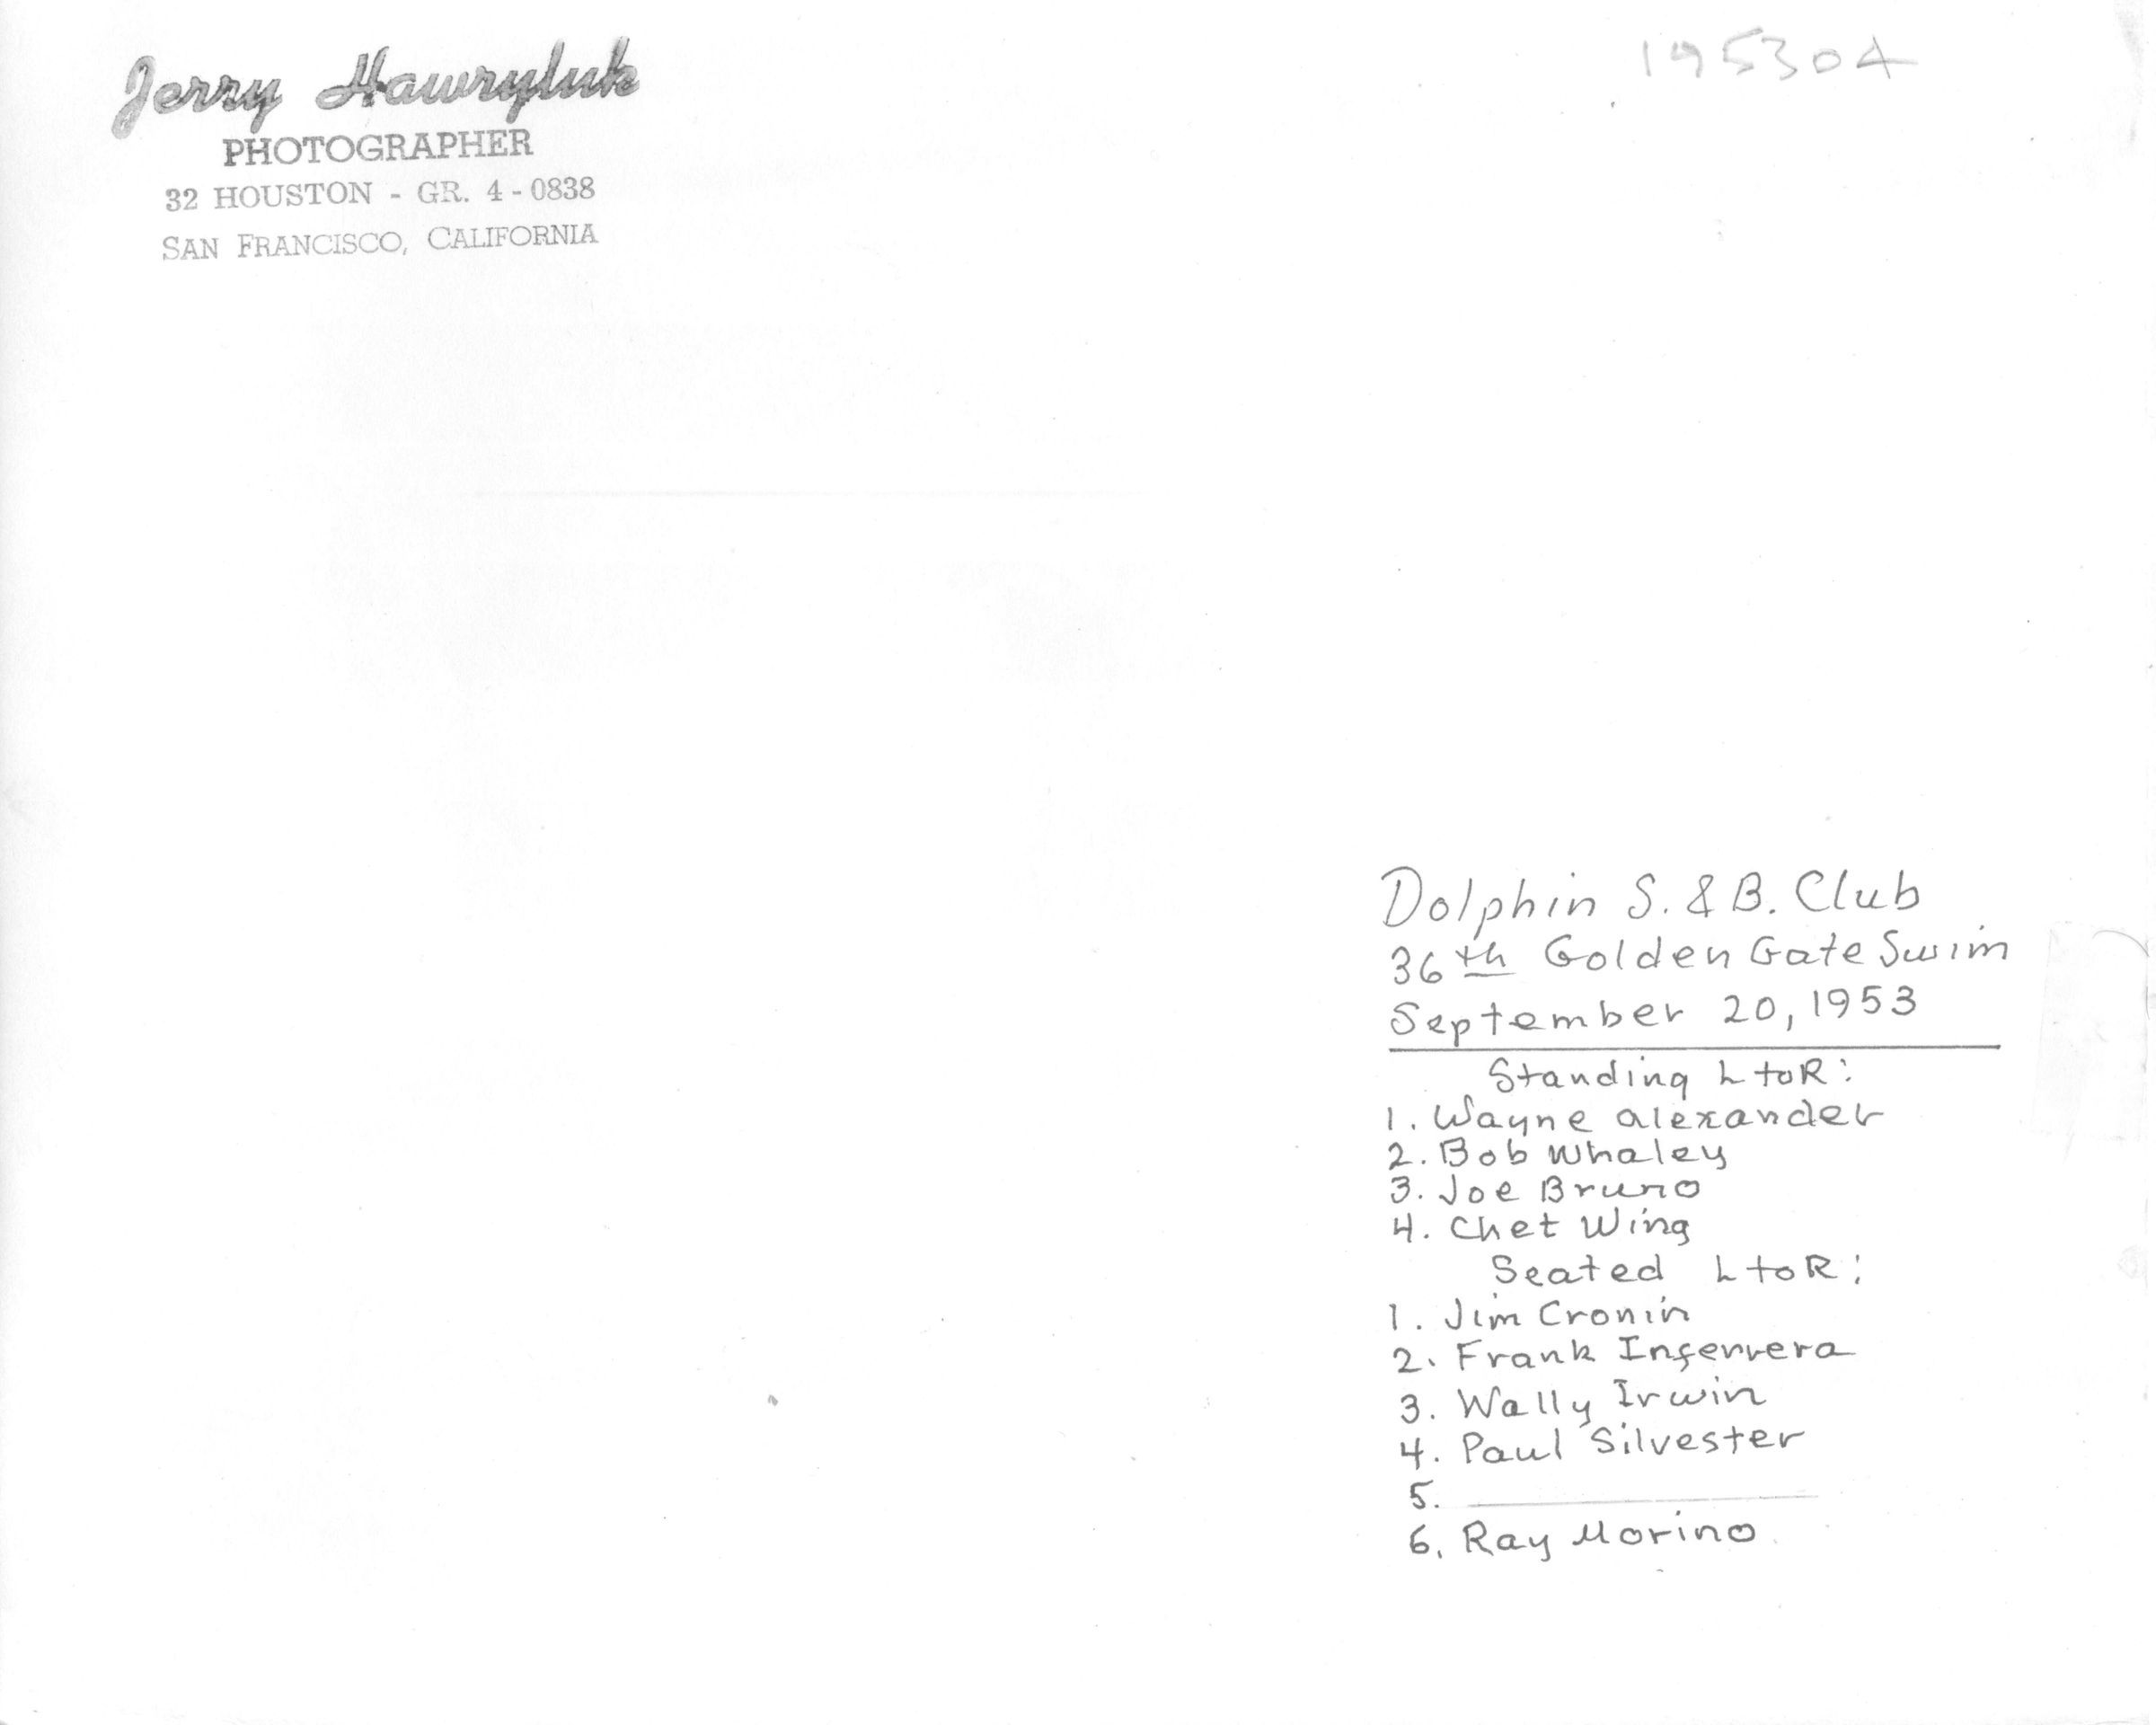 Jerry Hawryluk
PHOTOGRAPHER
32 HOUSTON - GR. 4-0838
SAN FRANCISCO, CALIFORNIA
195304
Dolphin S. & B. Club
36th Golden Gate Swim
September 20, 1953
Standing L to R:
1. Wayne Alexander
2. Bob Whaley
3. Joe Bruno
4. Chet Wing
Seated L to R:
1. Jim Cronin
2. Frank Inferrera
3. Wally Irwin
4. Paul Silvester
5.
6. Ray Morino